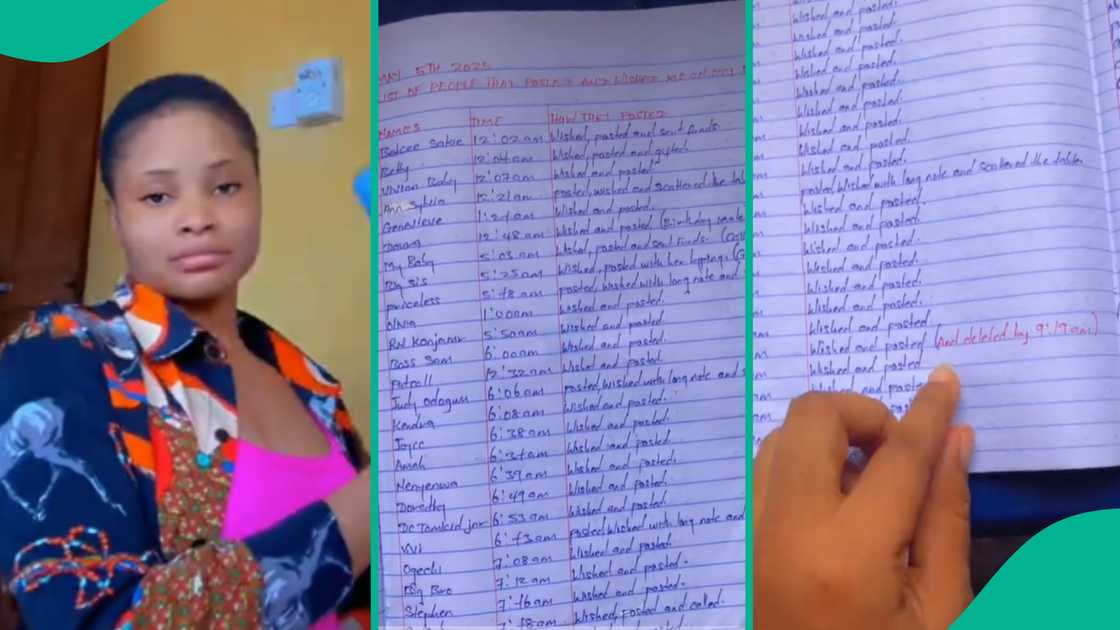 MAY 5TH 2025
LIST OF PEOPLE THAT POSTED AND WISHED ME ON MY
NAMES TIME HOW THEY POSTED
12:02am Wished, posted and sent funds.
Betty 12:04am Wished, posted and gifted.
Vivian Baby 12:07am Wished and posted
Ann Sylvia 12:21am posted, wished and scattered the
Genevieve 1:27am Wished and posted.
12:48am Wished and posted (Birthday mate
My Baby 5:03am Wished, posted and sent funds.
Big Sis 5:25am Wished, posted with her
priceless posted, wished with long note and
Olivia 1:00am Wished and posted.
RN 5:50am Wished and posted
Boss Sam 6:00am Wished and posted.
12:32am Wished and posted
Judy Odogwu 6:06am posted, wished with long note and
Kendra 6:08am Wished and posted.
Joyce 6:38am Wished and posted.
Amah 6:37am Wished and posted.
Nenyenwa 6:39am Wished and posted.
Dorathy 6:49am Wished and posted.
6:53am Wished and posted.
Vivi posted, wished with long note and
Ogechi 7:08am Wished and posted.
Big Bro 7:12am Wished and posted.
Stephen 7:16am Wished and posted.
7:18am Wished, posted and called.
Wished and posted.
Wished and posted.
Wished and posted.
Wished and posted.
Wished and posted.
Wished and posted.
Wished and posted.
Wished and posted.
Wished and posted.
posted, wished with long note and scattered the table.
Wished and posted.
Wished and posted.
Wished and posted.
Wished and posted.
Wished and posted.
Wished and posted.
Wished and posted.
Wished and posted (And deleted by 9:19am)
Wished and posted
Wished and posted